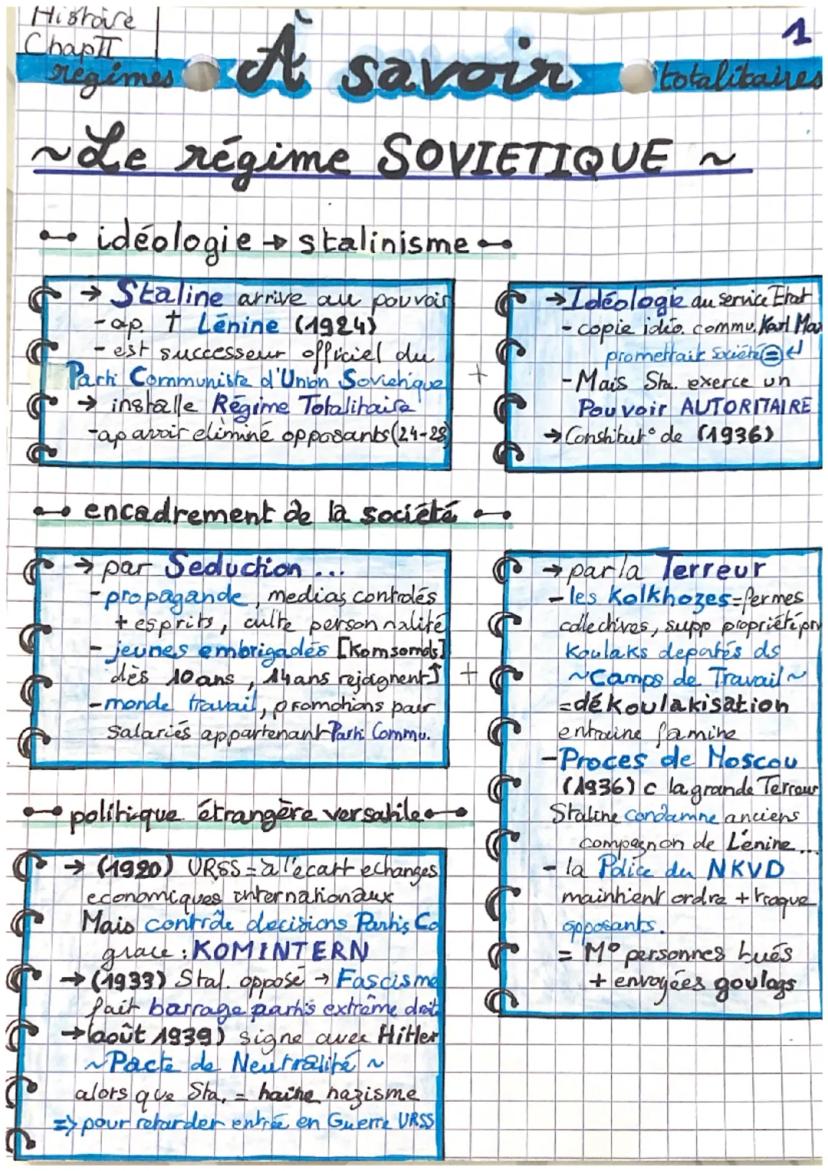 Histoire
Chap II
1
régimes À savoir totalitaires
~ Le régime SOVIETIQUE ~
idéologie → stalinisme
→ Staline arrive au pouvoir
- ap. † Lénine (1924)
- est successeur officiel du
Parti Communiste d'Union Sovietique
→ installe Régime Totalitaire
- ap avoir eliminé opposants (24-28)
+
→ Idéologie au service Etat
- copie idéo. commu. Karl Max
promettait société =
- Mais Sta. exerce un
Pouvoir AUTORITAIRE
→ Constitut° de (1936)
encadrement de la société
→ par Seduction ...
- propagande, medias controlés
+ esprits, culte personnalité
- jeunes embrigadés [Komsomols]
dès 10 ans, 14 ans rejoignent↑
- monde travail, promotions pour
salariés appartenant Parti Commu.
+
→ par la Terreur
- les Kolkhozes = fermes
collectives, supp propriété pr
Koulaks deportés ds
~ Camps de Travail ~
= dékoulakisation
entraine famine
- Proces de Moscou
(1936) c la grande Terreur
Staline condamne anciens
compagnon de Lénine...
- la Police du NKVD
maintient ordre + traque
opposants.
= M° personnes tués
+ envoyées goulags
politique étrangère versatile
→ (1920) URSS = à l'écart echanges
économiques internationaux
Mais contrôle decisions Partis Co
grace : KOMINTERN
→ (1933) Stal. opposé → Fascisme
fait barrage partis extrême droit
→ (août 1939) signe avec Hitler
~ Pacte de Neutralité ~
alors que Sta. = haine nazisme
=> pour retarder entrée en Guerre URSS